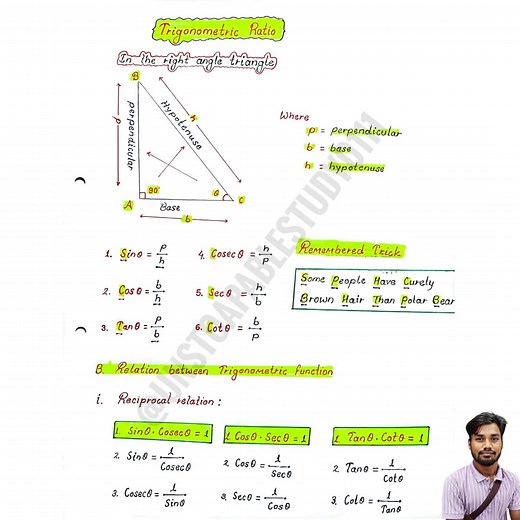 Trigonometric Ratio
In the right angle triangle
B
P
perpendicular
Hypotenuse
h
90°
θ
A
C
Base
b
Where
p = perpendicular
b = base
h = hypotenuse
1. Sinθ = P/h
4. Cosecθ = h/P
2. Cosθ = b/h
5. Secθ = h/b
3. Tanθ = P/b
6. Cotθ = b/P
Remembered Trick
Some People Have Curely
Brown Hair Than Polar Bear
B. Relation between Trigonometric function
i. Reciprocal relation:
1. Sinθ·Cosecθ = 1
2. Sinθ = 1/Cosecθ
3. Cosecθ = 1/Sinθ
1 Cosθ·Secθ = 1
2. Cosθ = 1/Secθ
3. Secθ = 1/Cosθ
1. Tanθ·Cotθ = 1
2. Tanθ = 1/Cotθ
3. Cotθ = 1/Tanθ